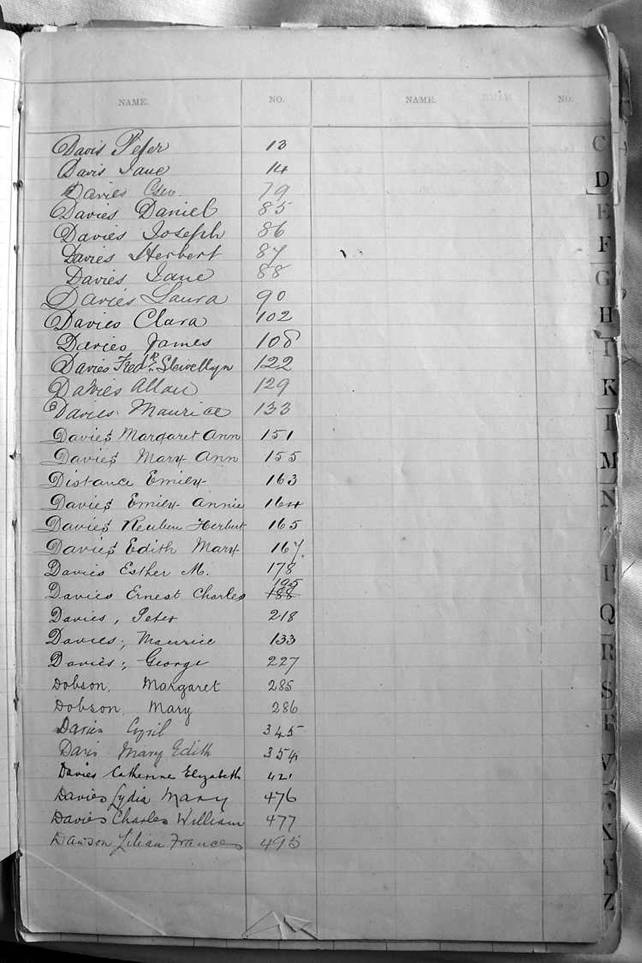 NAME. NO. NAME. NO.
Davis Peter 13
Davis Jane 14
Davies 79
Davies Daniel 85
Davies Joseph 86
Davies Herbert 87
Davies Jane 88
Davies Laura 90
Davies Clara 102
Davies James 108
Davies Fredk. Llewellyn 122
Davies Allan 129
Davies Maurice 133
Davies Margaret Ann 151
Davies Mary Ann 155
Distance Emily 163
Davies Emily Annie 164
Davies Reuben Herbert 165
Davies Edith Mary 167
Davies Esther M. 178
195
Davies Ernest Charles 188
Davies, Peter 218
Davies, Maurice 133
Davies, George 227
Dobson, Margaret 285
Dobson, Mary 286
Davies Cyril 345
Davis Mary Edith 354
Davies Catherine Elizabeth 421
Davies Lydia Mary 476
Davies Charles William 477
Dawson Lilian Frances 495
C
D
E
F
G
H
I
K
M
N
P
Q
R
S
V
X
Y
Z